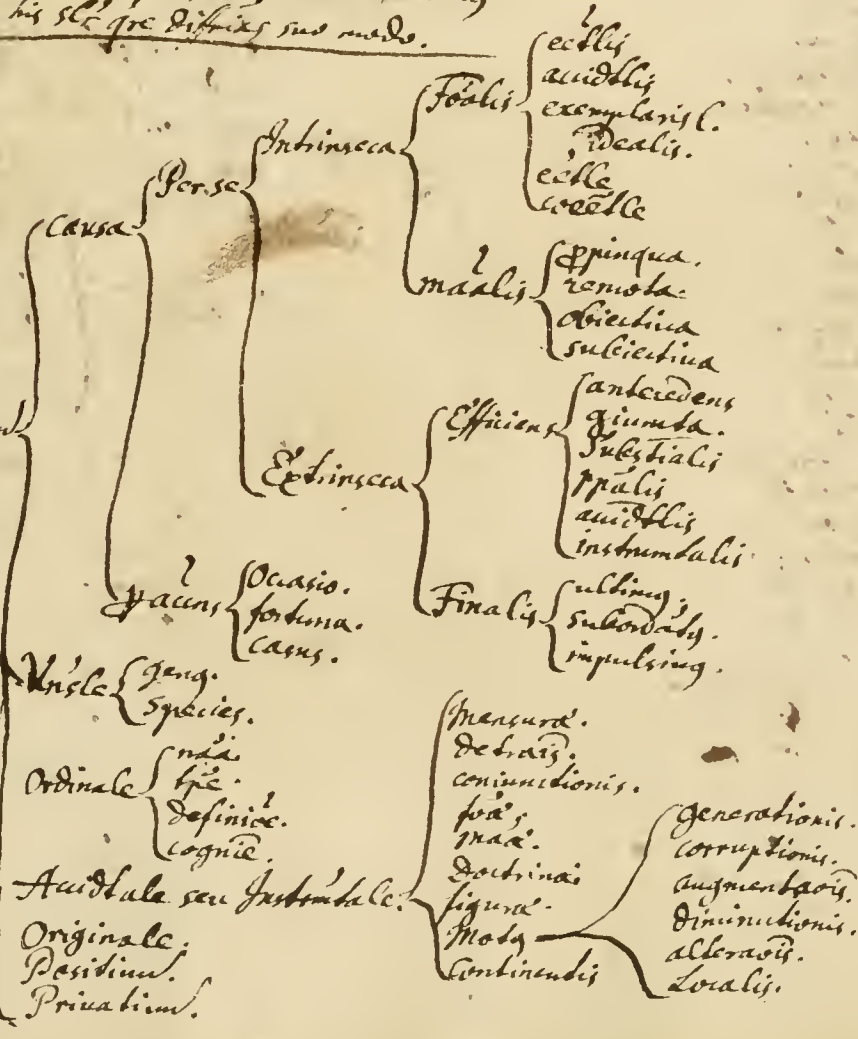 his slr̃ qre suo modo.
Causa
Per se
Intrinseca
Fóalis
ecẽlis
accidtlis
exemplaris l.
idealis.
ecẽle
maalis
ꝓpinqua.
remota.
obiectiua
subiectiua
Extrinseca
Efficiens
antecedens
Substialis
ppãlis
accidtlis
instrumtalis
Finalis
ultimꝰ,
subordãtꝰ.
impulsiuꝰ.
ꝑ accns
Ocasio.
fortuna.
casus.
Vnsle
genꝰ.
Species.
Ordinale
náa.
tpẽ.
definiõe.
cogniẽ.
Accidtale seu Instrũtale.
mensurae.
coniunctionis.
foáe,
maae.
doctrinae
figurae.
Motꝰ
Continentis
generationis.
corruptionis.
augmentaõis.
diminutionis.
alteraõis.
Localis.
Originale.
Positiuu.
Priuatiuu.